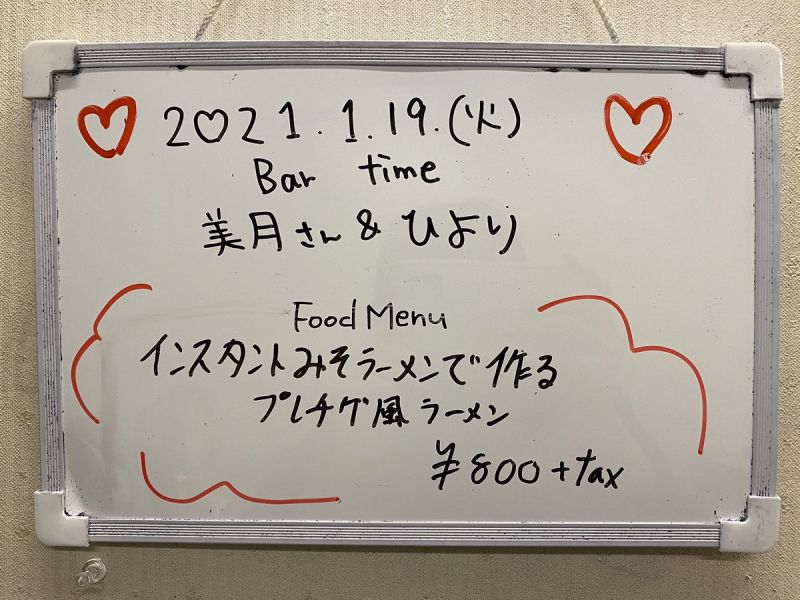 2♡21.1.19.(火)
Bar time
美月さん & ひより
Food Menu
インスタントみそラーメンで作る
プルチゲ風ラーメン
¥800+tax